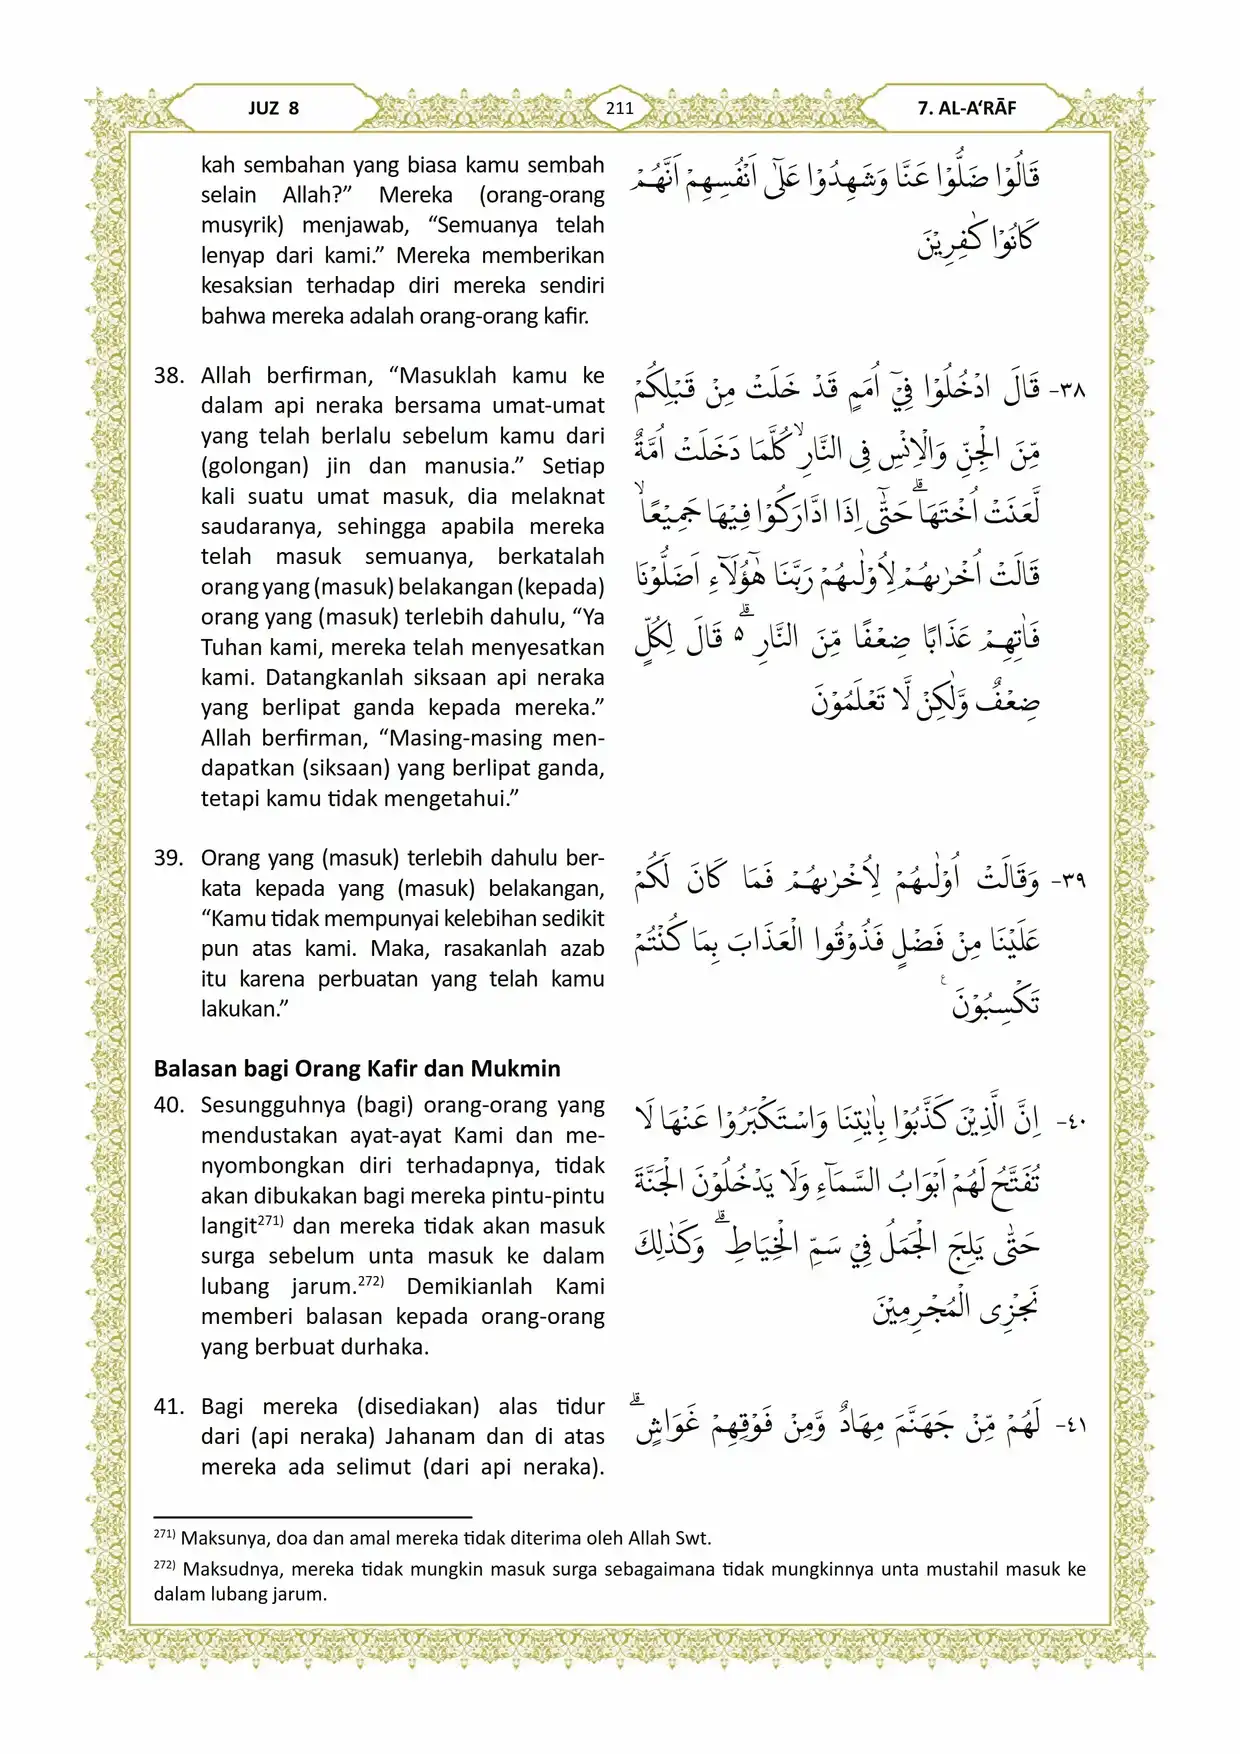 JUZ 8
211
7. AL-A‘RĀF
kah sembahan yang biasa kamu sembah
selain Allah?” Mereka (orang-orang
musyrik) menjawab, “Semuanya telah
lenyap dari kami.” Mereka memberikan
kesaksian terhadap diri mereka sendiri
bahwa mereka adalah orang-orang kafir.
قَالُوْا ضَلُّوْا عَنَّا وَشَهِدُوْا عَلٰٓى اَنْفُسِهِمْ اَنَّهُمْ
كَانُوْا كٰفِرِيْنَ
38. Allah berfirman, “Masuklah kamu ke
dalam api neraka bersama umat-umat
yang telah berlalu sebelum kamu dari
(golongan) jin dan manusia.” Setiap
kali suatu umat masuk, dia melaknat
saudaranya, sehingga apabila mereka
telah masuk semuanya, berkatalah
orang yang (masuk) belakangan (kepada)
orang yang (masuk) terlebih dahulu, “Ya
Tuhan kami, mereka telah menyesatkan
kami. Datangkanlah siksaan api neraka
yang berlipat ganda kepada mereka.”
Allah berfirman, “Masing-masing men-
dapatkan (siksaan) yang berlipat ganda,
tetapi kamu tidak mengetahui.”
٣٨- قَالَ ادْخُلُوْا فِيْٓ اُمَمٍ قَدْ خَلَتْ مِنْ قَبْلِكُمْ
مِّنَ الْجِنِّ وَالْاِنْسِ فِى النَّارِۙ كُلَّمَا دَخَلَتْ اُمَّةٌ
لَّعَنَتْ اُخْتَهَاۗ حَتّٰٓى اِذَا ادَّارَكُوْا فِيْهَا جَمِيْعًاۙ
قَالَتْ اُخْرٰىهُمْ لِاُوْلٰىهُمْ رَبَّنَا هٰٓؤُلَاۤءِ اَضَلُّوْنَا
فَاٰتِهِمْ عَذَابًا ضِعْفًا مِّنَ النَّارِ ەۗ قَالَ لِكُلٍّ
ضِعْفٌ وَّلٰكِنْ لَّا تَعْلَمُوْنَ
39. Orang yang (masuk) terlebih dahulu ber-
kata kepada yang (masuk) belakangan,
“Kamu tidak mempunyai kelebihan sedikit
pun atas kami. Maka, rasakanlah azab
itu karena perbuatan yang telah kamu
lakukan.”
٣٩- وَقَالَتْ اُوْلٰىهُمْ لِاُخْرٰىهُمْ فَمَا كَانَ لَكُمْ
عَلَيْنَا مِنْ فَضْلٍ فَذُوْقُوا الْعَذَابَ بِمَا كُنْتُمْ
تَكْسِبُوْنَ ࣖ
Balasan bagi Orang Kafir dan Mukmin
40. Sesungguhnya (bagi) orang-orang yang
mendustakan ayat-ayat Kami dan me-
nyombongkan diri terhadapnya, tidak
akan dibukakan bagi mereka pintu-pintu
langit²⁷¹⁾ dan mereka tidak akan masuk
surga sebelum unta masuk ke dalam
lubang jarum.²⁷²⁾ Demikianlah Kami
memberi balasan kepada orang-orang
yang berbuat durhaka.
٤٠- اِنَّ الَّذِيْنَ كَذَّبُوْا بِاٰيٰتِنَا وَاسْتَكْبَرُوْا عَنْهَا لَا
تُفَتَّحُ لَهُمْ اَبْوَابُ السَّمَاۤءِ وَلَا يَدْخُلُوْنَ الْجَنَّةَ
حَتّٰى يَلِجَ الْجَمَلُ فِيْ سَمِّ الْخِيَاطِ ۗ وَكَذٰلِكَ
نَجْزِى الْمُجْرِمِيْنَ
41. Bagi mereka (disediakan) alas tidur
dari (api neraka) Jahanam dan di atas
mereka ada selimut (dari api neraka).
٤١- لَهُمْ مِّنْ جَهَنَّمَ مِهَادٌ وَّمِنْ فَوْقِهِمْ غَوَاشٍۗ
²⁷¹⁾ Maksunya, doa dan amal mereka tidak diterima oleh Allah Swt.
²⁷²⁾ Maksudnya, mereka tidak mungkin masuk surga sebagaimana tidak mungkinnya unta mustahil masuk ke
dalam lubang jarum.